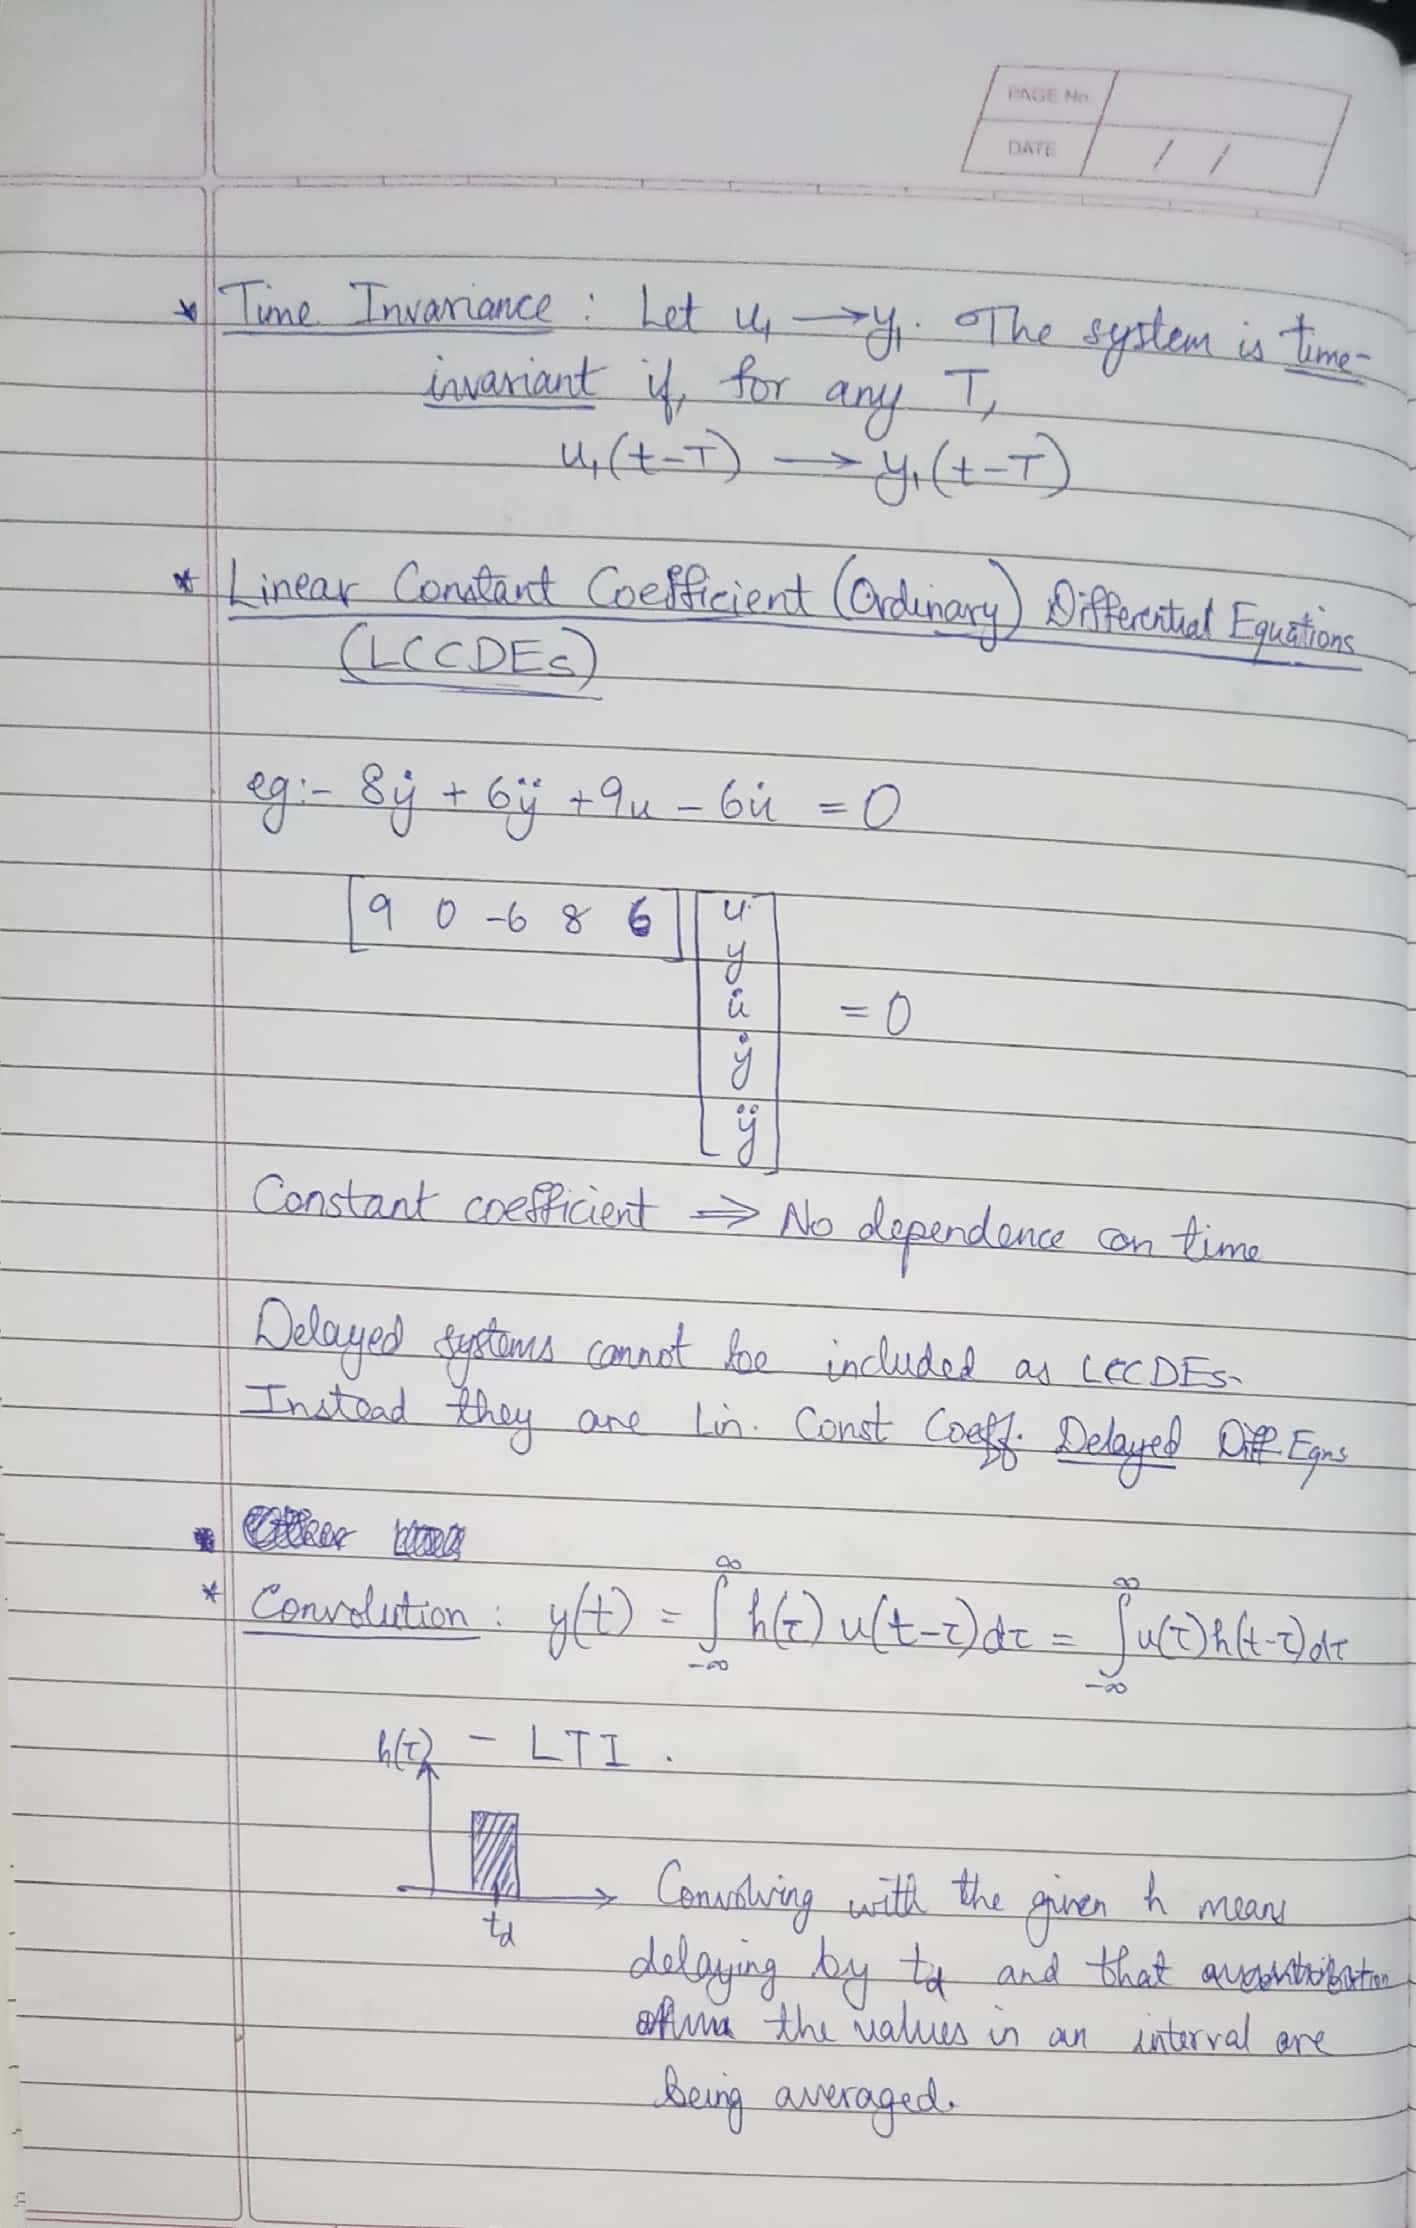 PAGE No
DATE / /
* Time Invariance : Let u₁ → y₁. The system is time-
invariant if, for any T,
u₁(t-T) → y₁(t-T)
* Linear Constant Coefficient (Ordinary) Differential Equations
(LCCDEs)
eg:- 8ẏ + 6ÿ + 9u - 6u̇ = 0
[9 0 -6 8 6] [u
y
u̇ = 0
ẏ
ÿ]
Constant coefficient ⇒ No dependence on time
Delayed systems cannot be included as LCCDEs.
Instead they are Lin. Const Coeff. Delayed Diff. Eqns
* Convolution : y(t) = ∫_{-∞}^{∞} h(τ) u(t-τ)dτ = ∫_{-∞}^{∞} u(τ)h(t-τ)dτ
h(τ) - LTI .
Convolving with the given h means
t_d
delaying by t_d and that
the values in an interval are
being averaged.